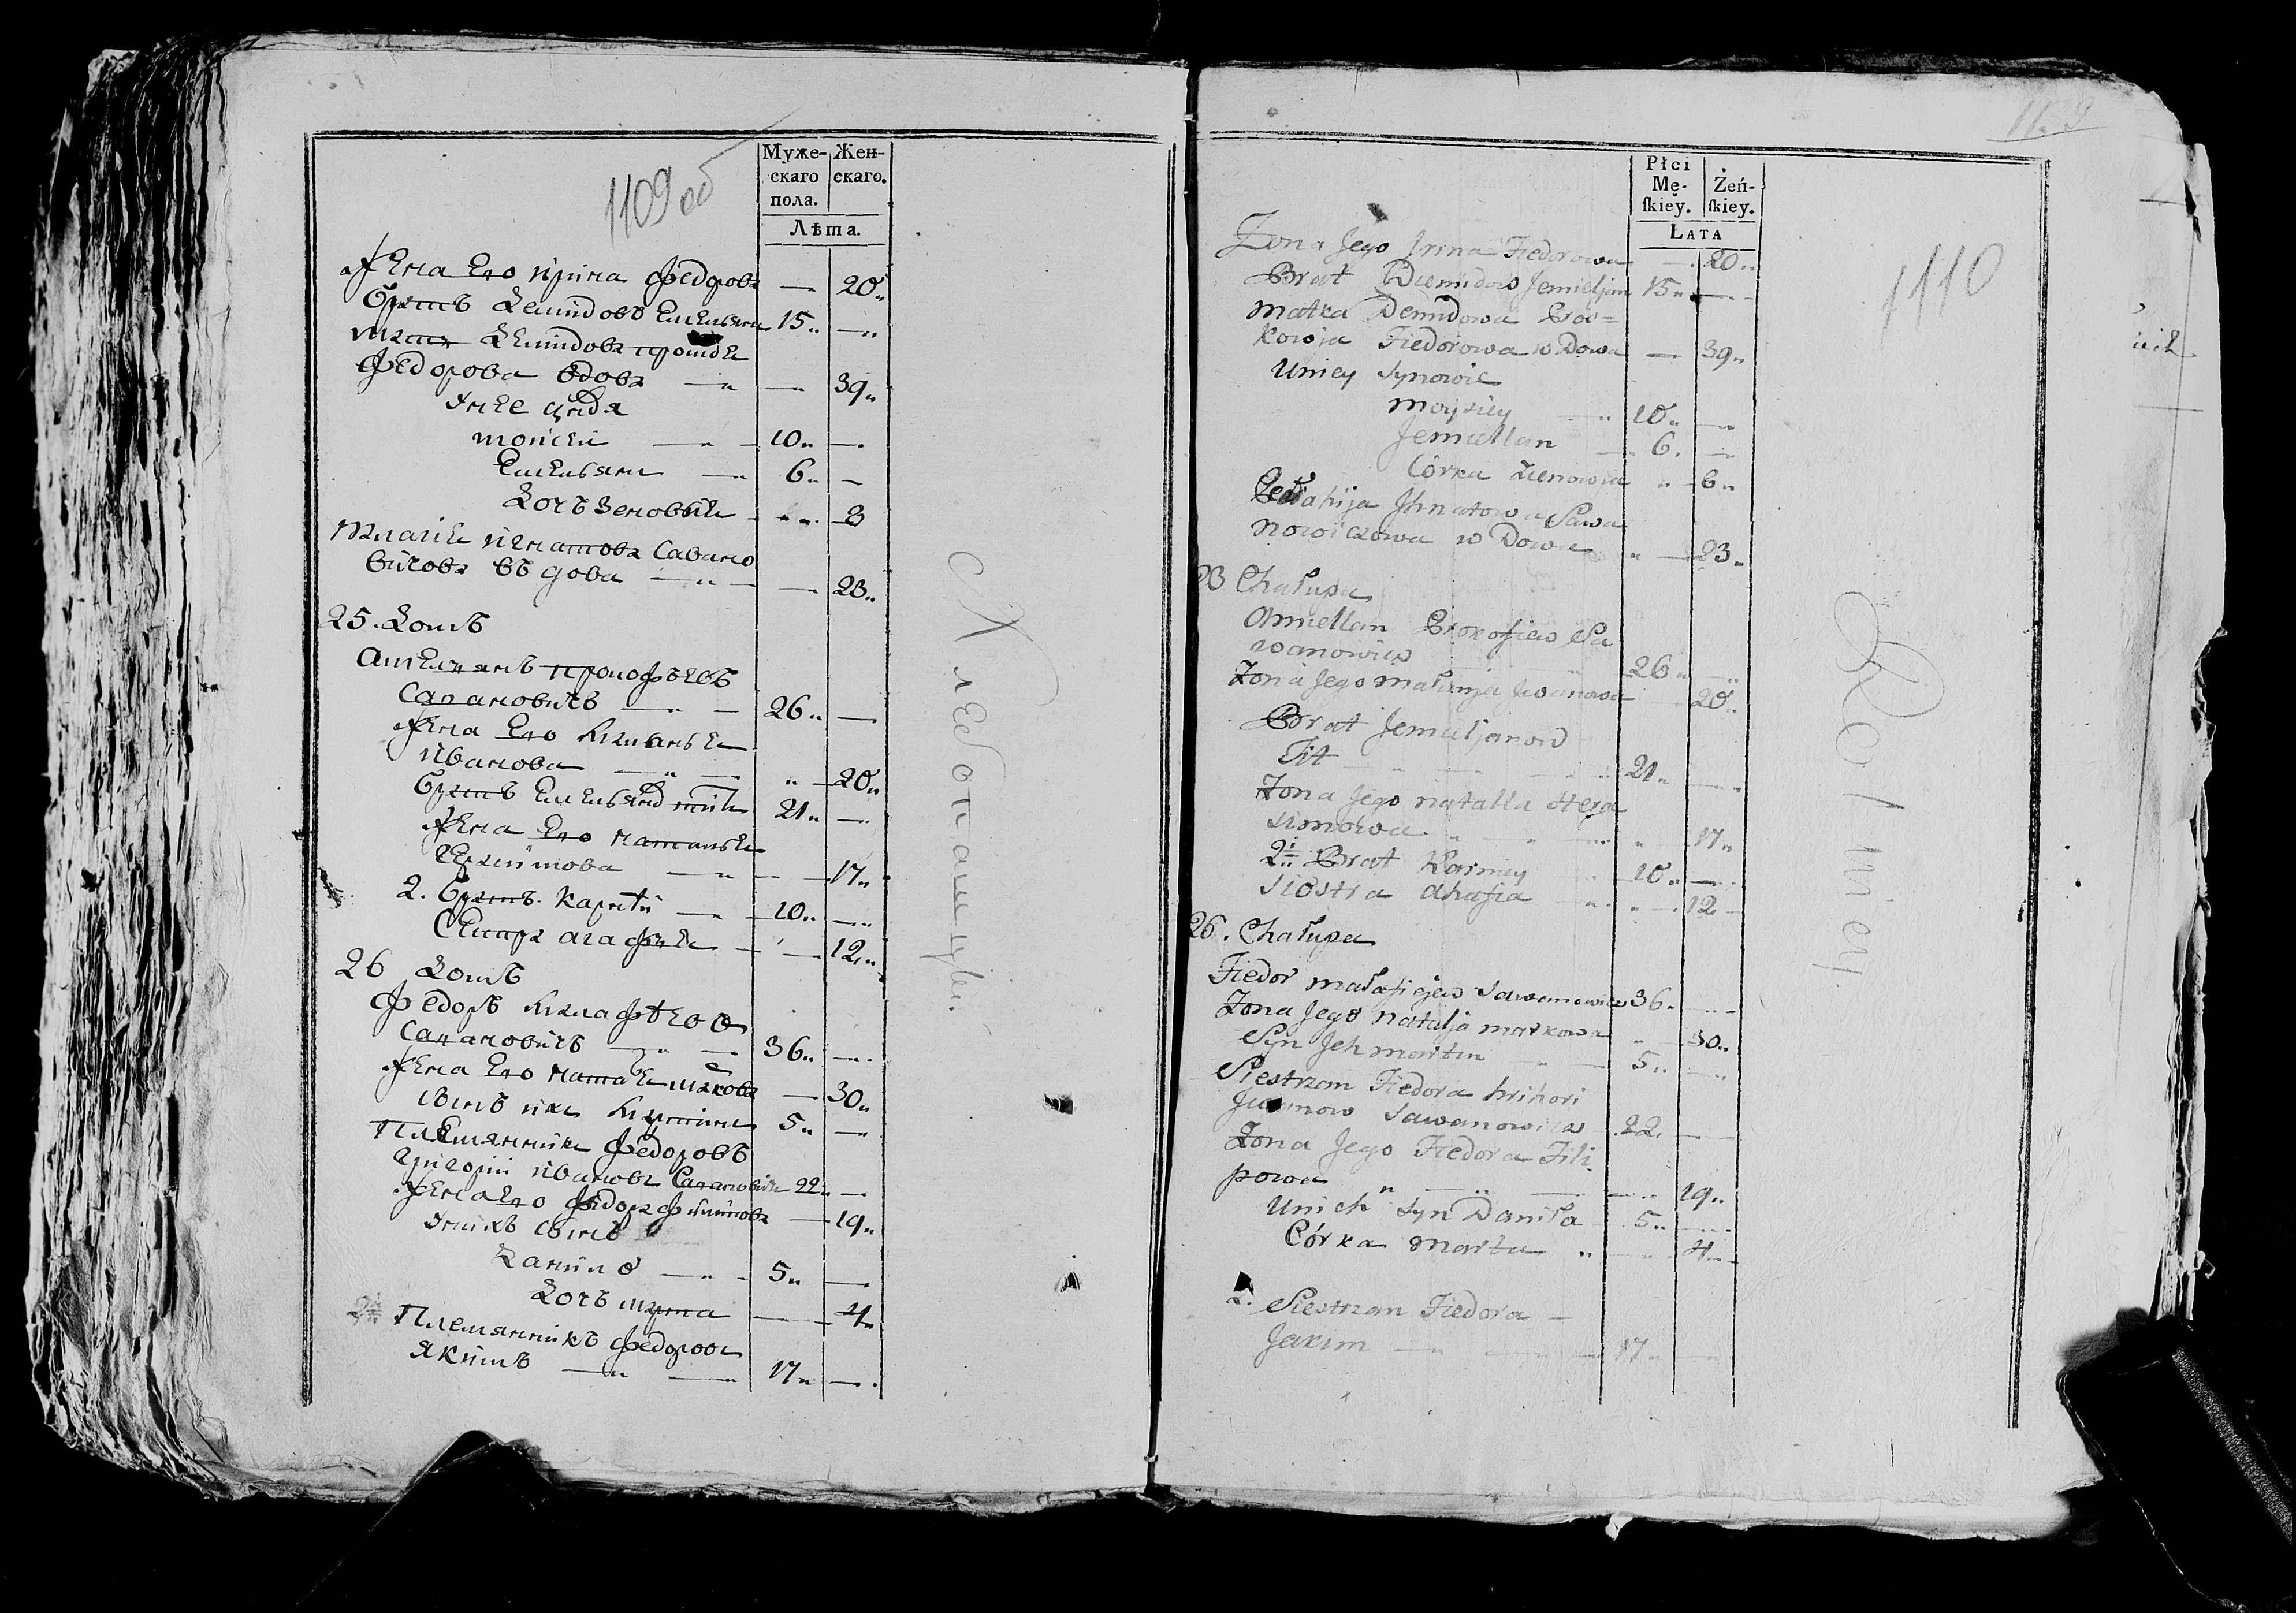 1109 об
Муже-
скаго
пола.
Жен-
скаго.
Лѣта.
Жена Его Ирина Федорова — 20
Братъ Демидовъ Емельян 15 —
Мать Демидова
Федорова вдова — 39
У нее
Моисей 10 —
Емельян 6 —
Дочь Зеновья
Игнатова Савано
вичова въдова — 23
25. Домъ
Прокофьевъ
Савановичъ 26 —
Жена Его
Иванова 20
Братъ Емельянов Тит 21 —
Жена Его Наталья
17
2. Братъ 10 —
Сестра Агафья — 12
26 Домъ
Федоръ
Савановичъ 36 —
Жена Его Маркова — 30
Сынъ их Мартин 5 —
Племянник Федоровъ
Григорий Иванов Саванович 22 —
Жена Его Федора Филипова — 19
У них сынъ
Данило 5 —
Дочь Марта — 4
2й Племянникъ Федоров
Якимъ 17 —
Хлебопашцы.
1110
Płci
Mę-
skiey.
Żeń-
skiey.
LATA
Zona Jego Irina Fiedorowa — 20
Brat Diemidow Jemieljan 15 —
Matka Demidowa Pras=
kowja Fiedorowa wDowa — 39
Uniey Synowie
Moysiey 10 —
Jemiellan 6 —
Córka Zienowja 6
Jhnatowa Sawa
nowiczowa wDowa — 23
Chałupa
Omiellan Prokofiew Sa
wanowicz 26 —
Zona Jego Małanja Jwanowa 20
Brat Jemieljanow
Tit 21 —
Zona Jego Natalla Hera
simowa 17
2i Brat 10 —
Siostra Ahafia 12
26. Chałupa
Fiedor Małafiejew Sawanowicz 36 —
Zona Jego Natalja Markowa 30
Syn Jch Martin 5 —
Siestrzan Fiedora Hrihori
Jwanow Sawanowicz 22 —
Zona Jego Fiedora Fili
powa 19
Unich Syn Daniła 5 —
Córka Marta 4
2. Siestrzan Fiedora —
Jakim 17 —
Rolniey